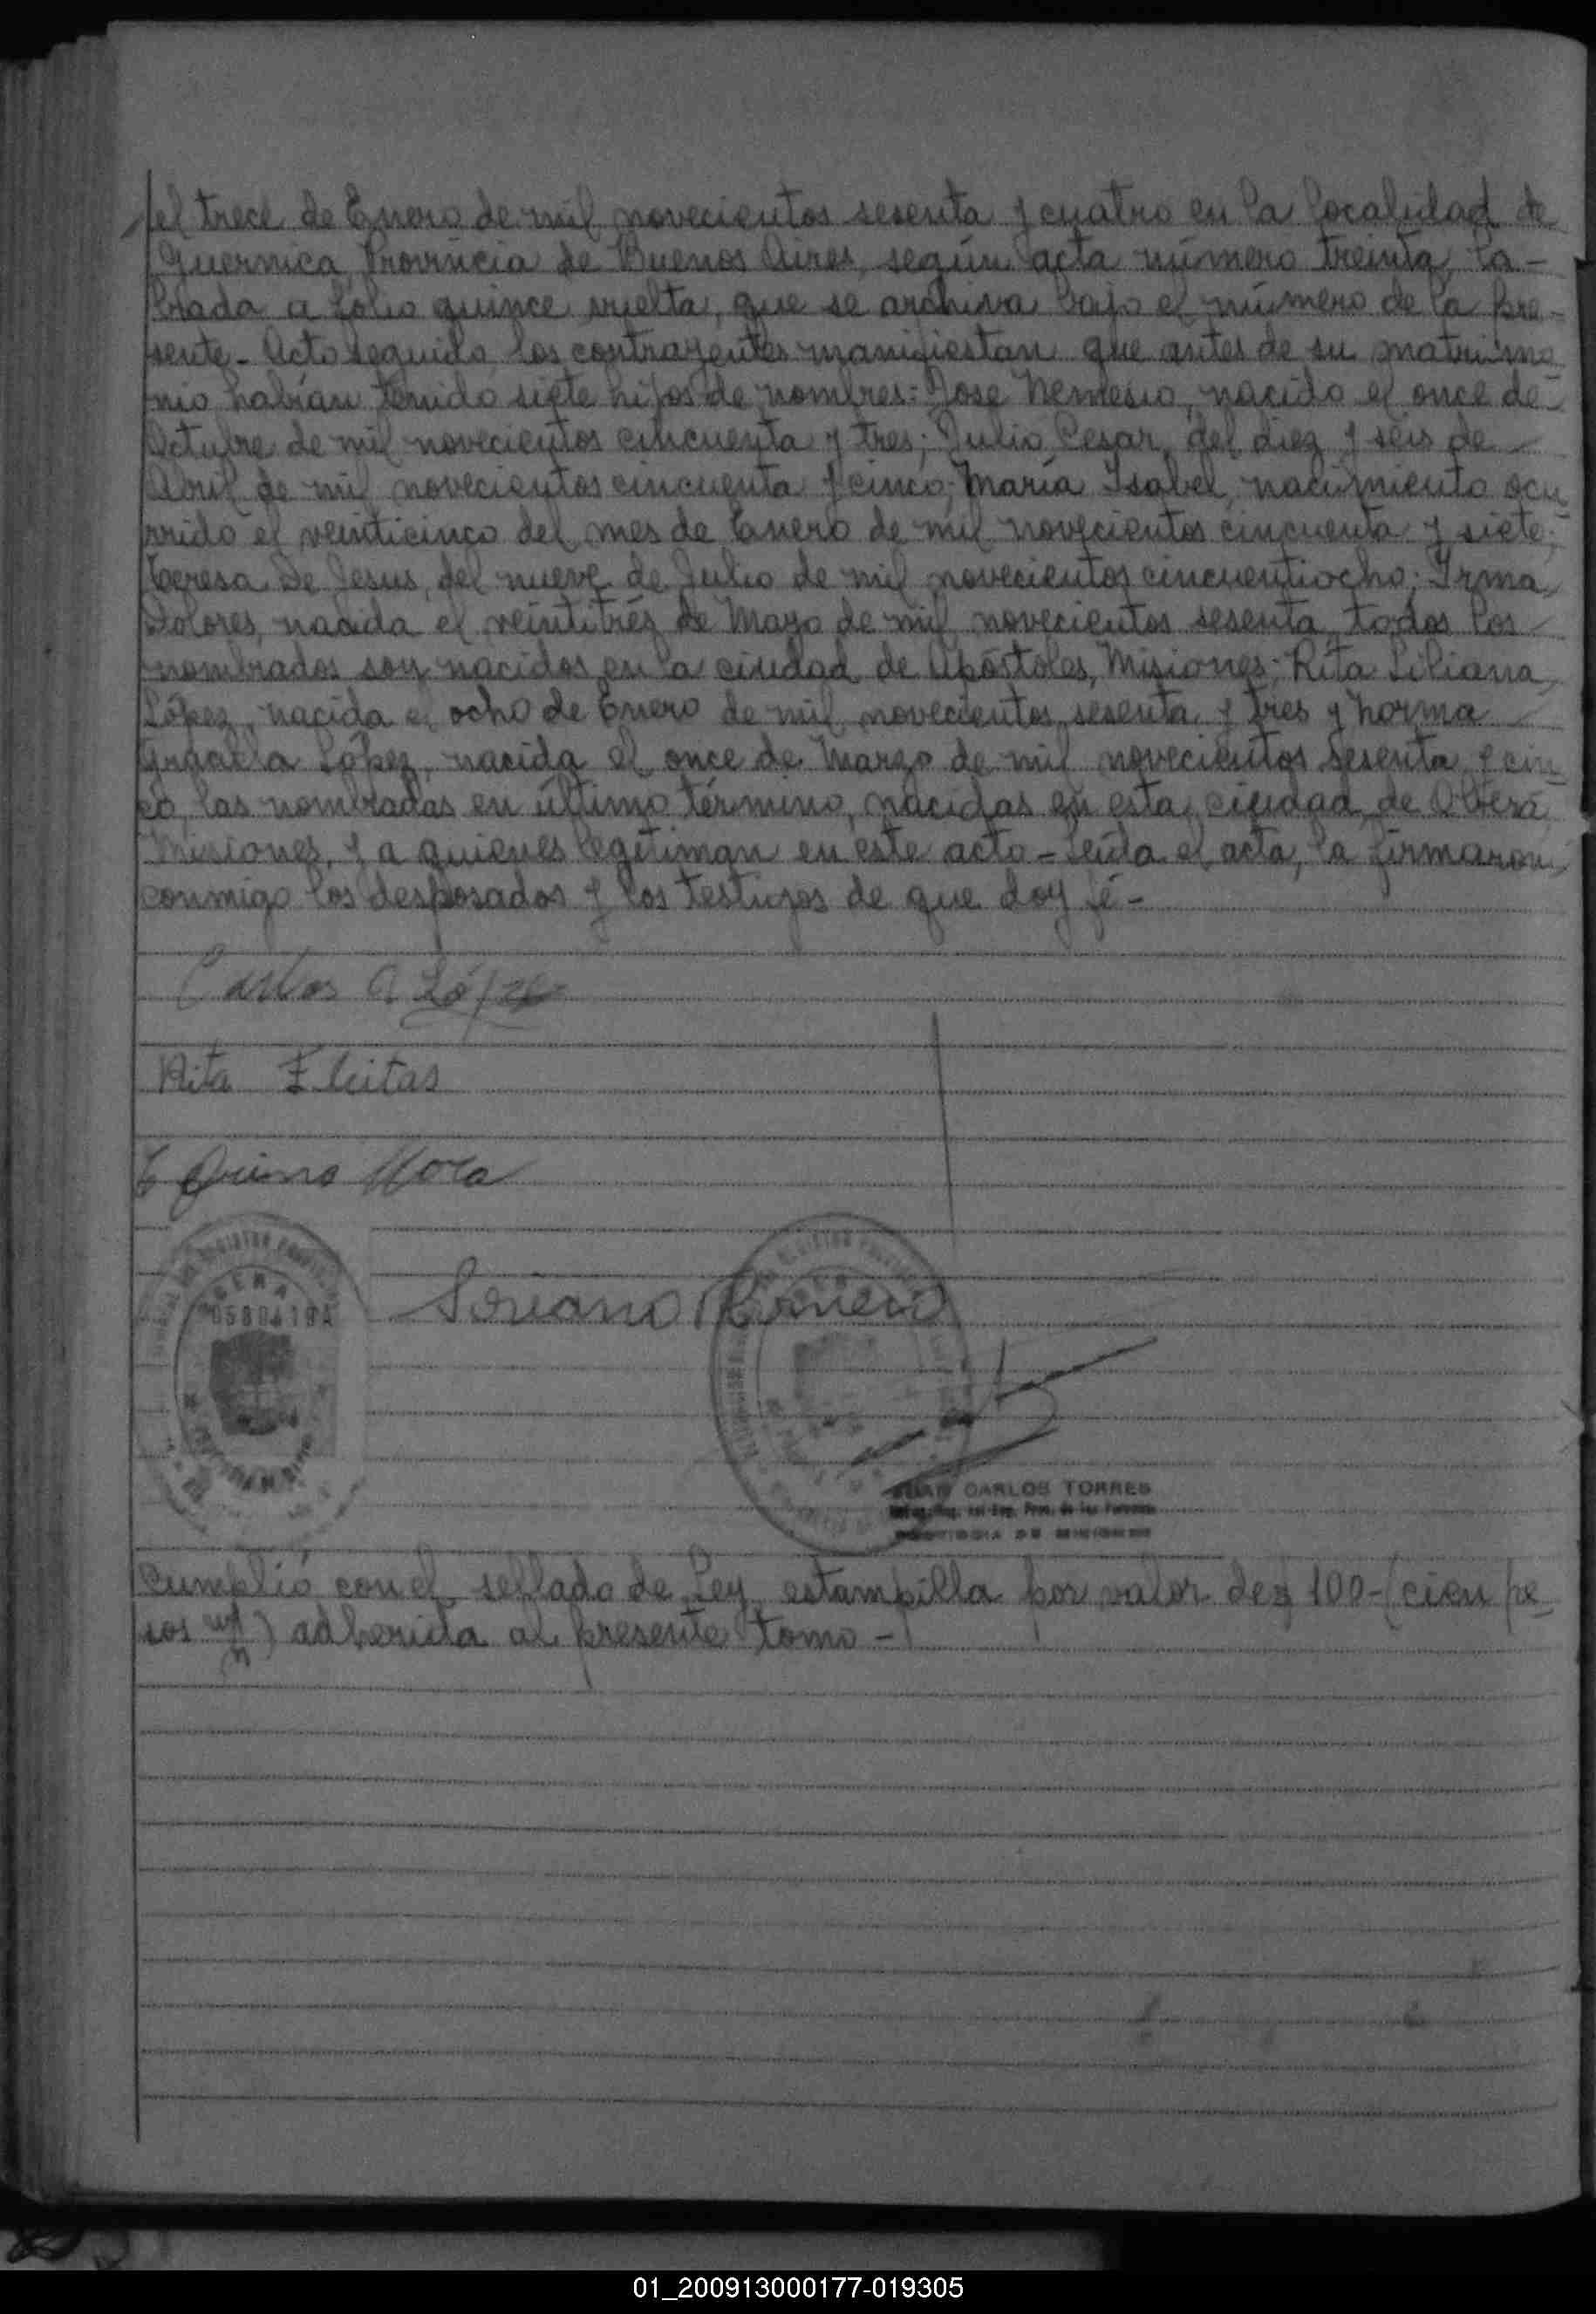 el trece de Enero de mil novecientos sesenta y cuatro en la localidad de
Guernica, Provincia de Buenos Aires, según acta número treinta, la-
brada a folio quince vuelta, que se archiva bajo el número de la pre-
sente.- Acto seguido, los contrayentes manifiestan que antes de su matrimo
nio habían tenido siete hijos de nombres: Jose Nemesio, nacido el once de
Octubre de mil novecientos cincuenta y tres; Julio Cesar, del diez y seis de
Abril de mil novecientos cincuenta y cinco; María Isabel, nacimiento ocu
rrido el veinticinco del mes de Enero de mil novecientos cincuenta y siete;
Teresa De Jesus, del nueve de Julio de mil novecientos cincuentiocho; Irma
Dolores, nacida el veintitrés de Mayo de mil novecientos sesenta, todos los
nombrados son nacidos en la ciudad de Apóstoles, Misiones; Rita Liliana
López, nacida el ocho de Enero de mil novecientos sesenta y tres y Norma
Graciela López, nacida el once de Marzo de mil novecientos sesenta y cin
co, las nombradas en último término, nacidas en esta ciudad de Oberá
Misiones, y a quienes legitiman en este acto - Leída el acta, la firmaron
conmigo los desposados y los testigos de que doy fé -
Carlos A López
Rita Fleitas
Quirno Mora
OBERA
0580419A
Soriano
JUAN CARLOS TORRES
Cumplió con el sellado de Ley, estampilla por valor de $ 100-(cien pe
sos m/n) adherida al presente tomo -
01_200913000177-019305